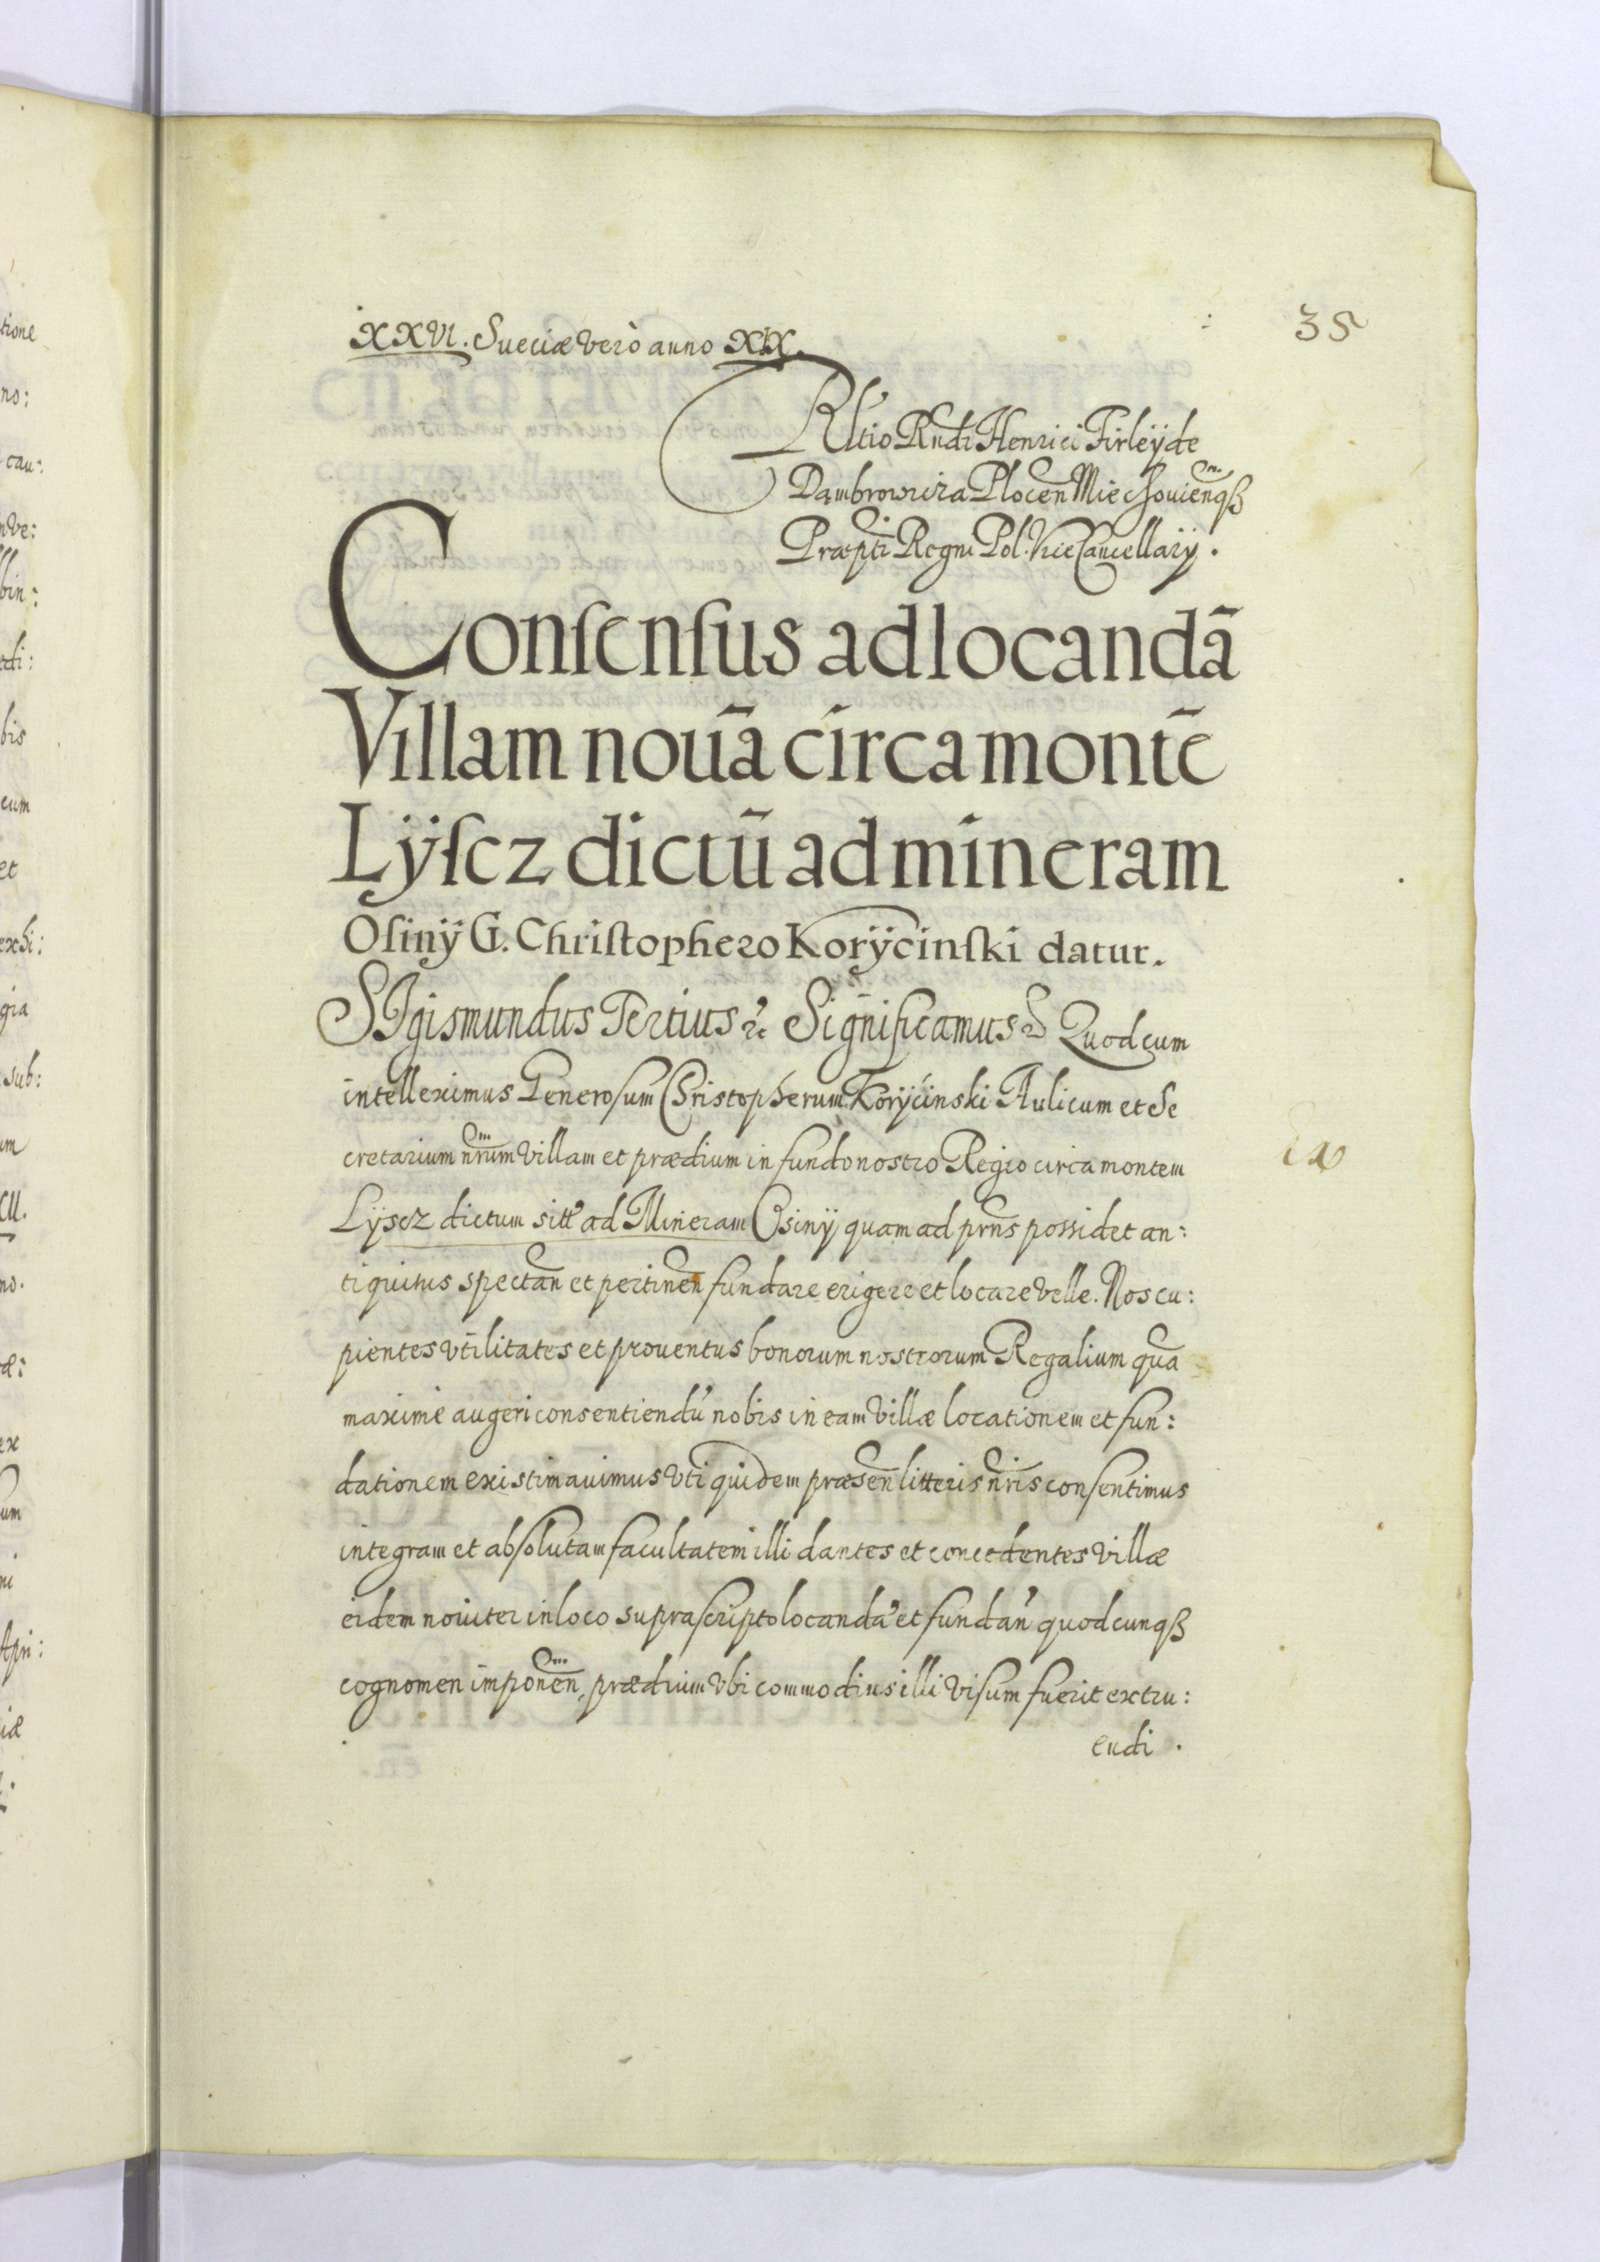 35
XXVI. Sueciæ verò anno XIX.
Rltio Rndi Henrici Firleÿ de
Dambrowica Plocen Miechouienqß
Præpti Regni Pol. ViceCancellarÿ.
Consensus ad locandā
Villam nouā circa montē
Lÿscz dictū ad mineram
Osinÿ G. Christophero Korÿcinski datur.
SIgismundus Tertius &c Significamus &c Quod cum
intelleximus Generosum Christopherum Korÿcinski Aulicum et Se
cretarium nrum villam et prædium in fundo nostro Regio circa montem
Lÿscz dictum sitt ad Mineram Osinÿ quam ad prns possidet an:
tiquitus spectan et pertinen fundare erigere et locare velle. Nos cu:
pientes vtilitates et prouentus bonorum nostrorum Regalium qua
maxime augeri consentiendū nobis in eam villæ locationem et fun:
dationem existimauimus vti quidem præsen litteris nris consentimus
integram et absolutam facultatem illi dantes et concedentes villæ
eidem nouiter in loco suprascripto locanda et fundan quodcunqß
cognomen imponen, prædium vbi commodius illi visum fuerit extru:
endi.